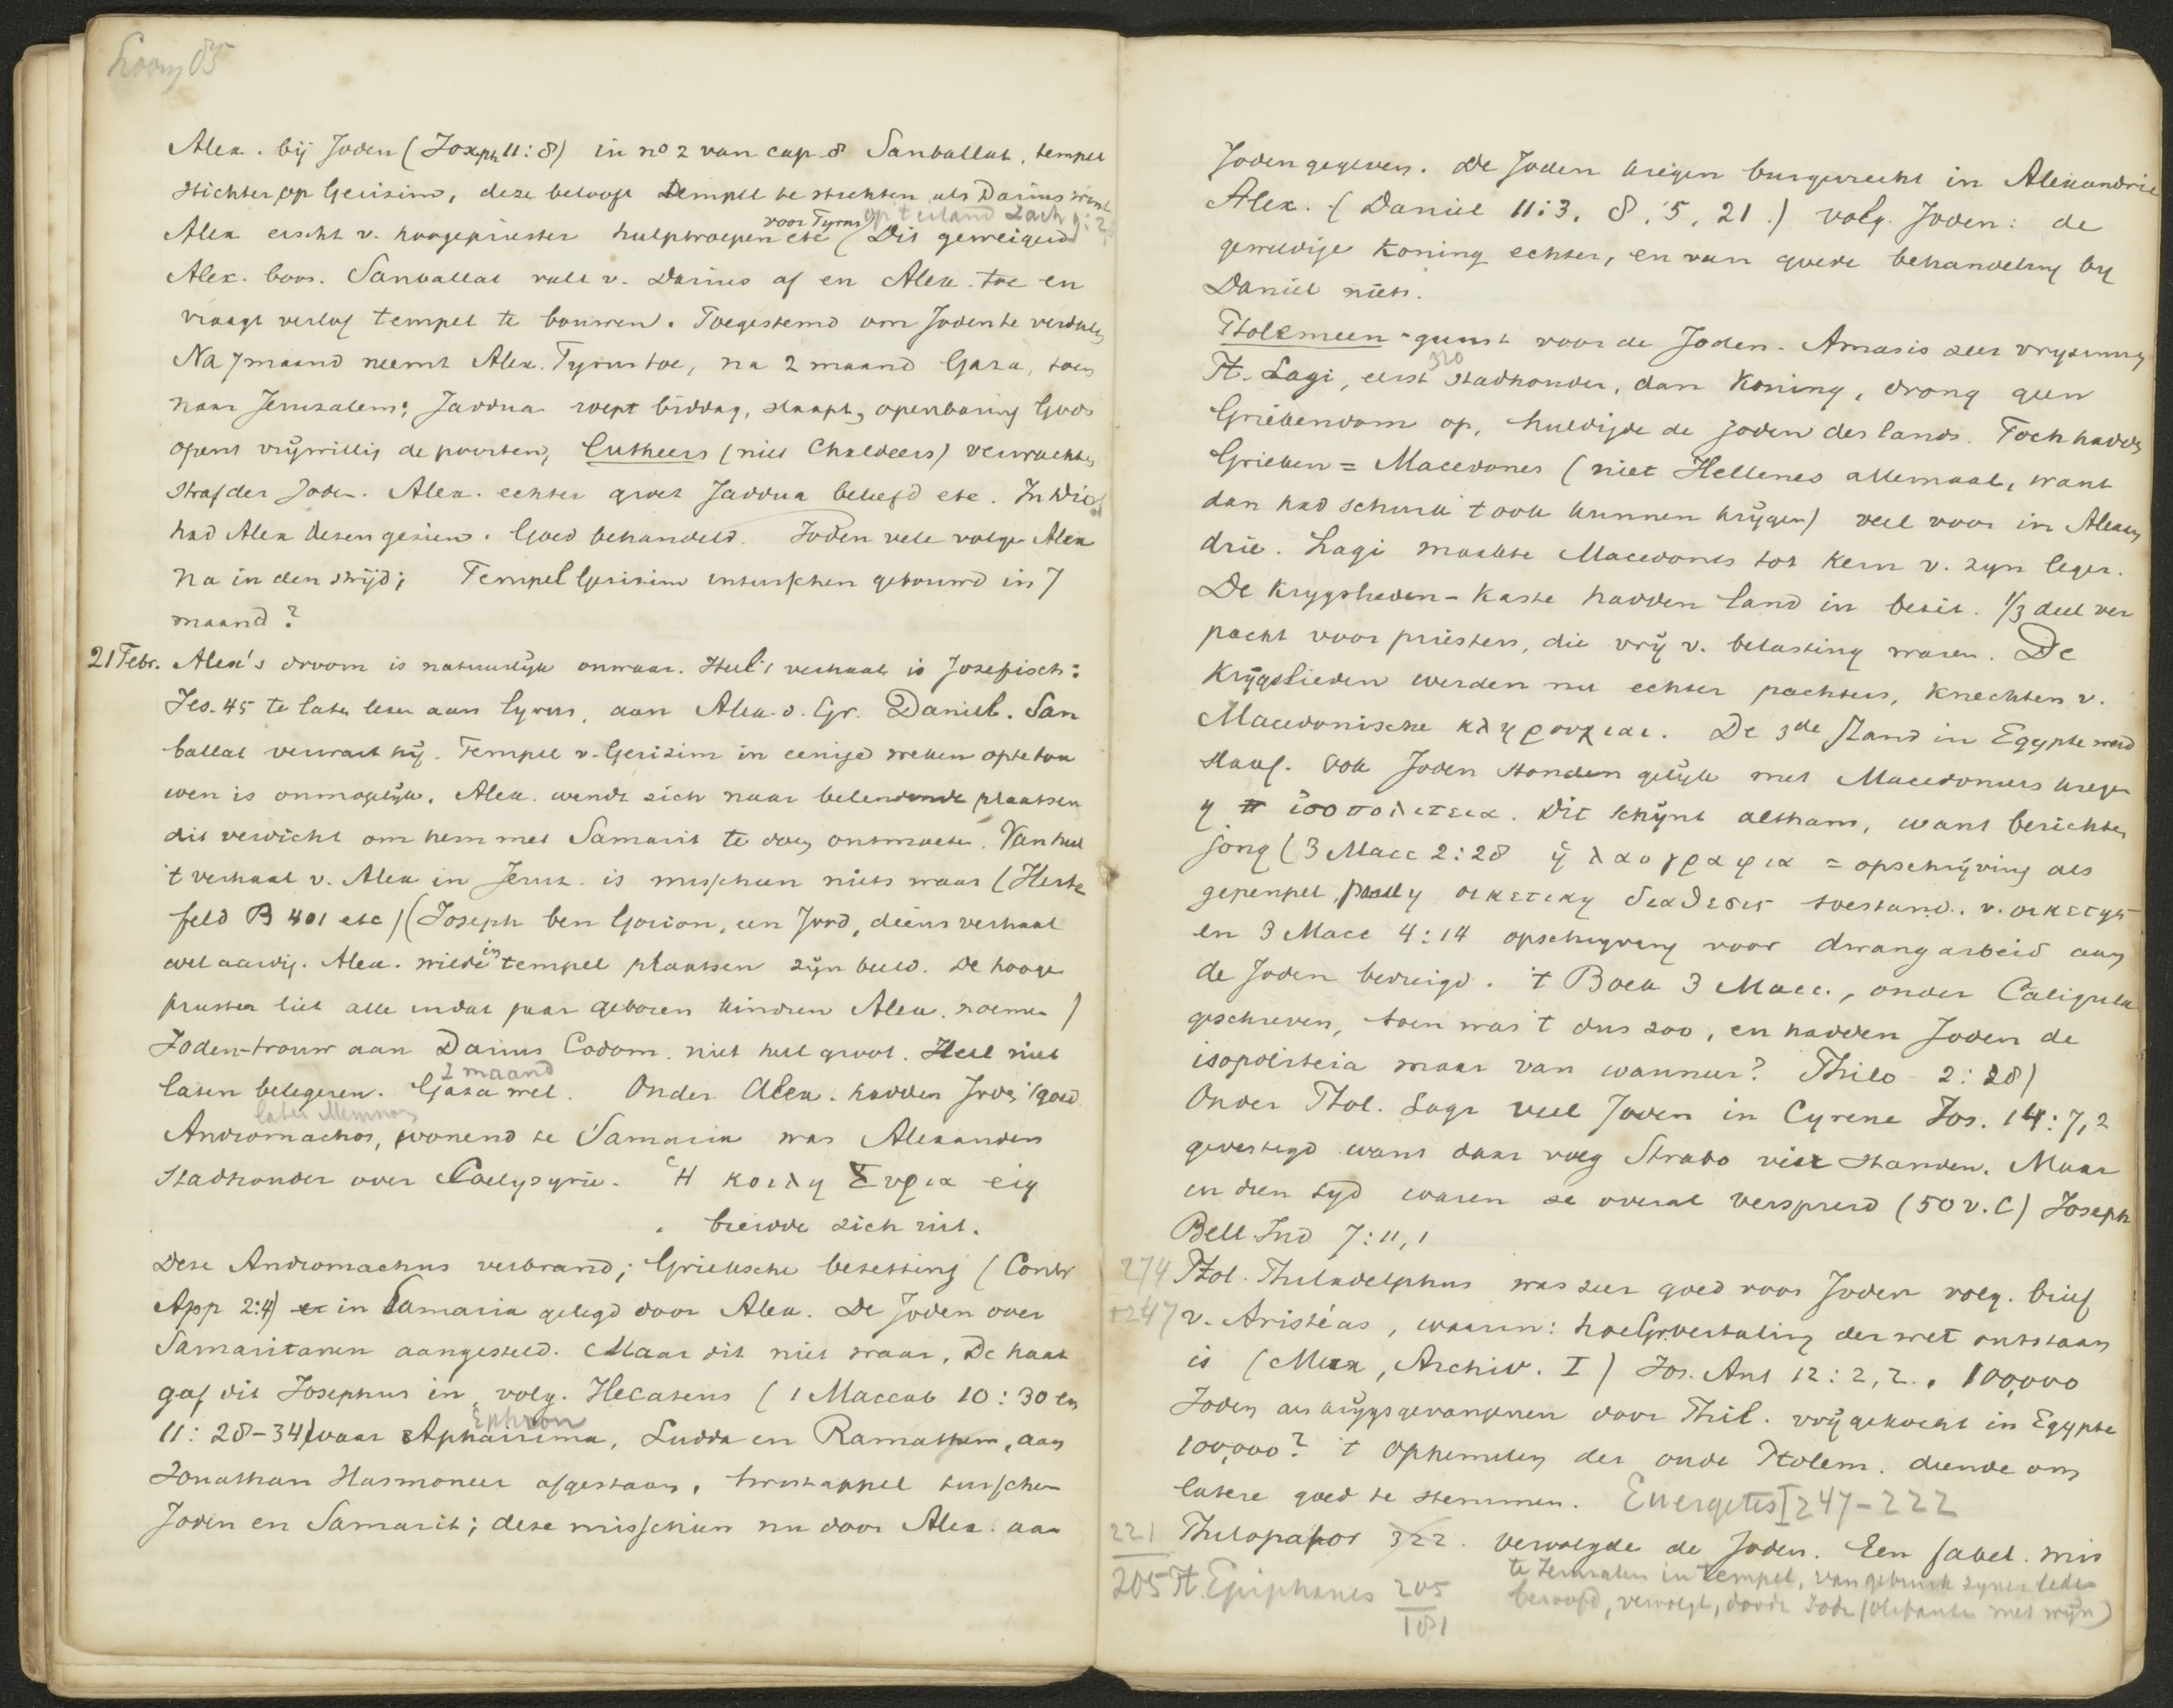 85
Alex. bij Joden (Joseph 11:8) in no 2 van cap. 8 Sanballat, tempel
stichter op Gerizim, deze beloofd tempel te stichten als Darius wint
voor Tyrus op 't eiland Zach 9:2,
Alex eischt v. hoogepriester hulptroepen etc (Dit geweigerd
Alex. boos. Sanballat valt v. Darius af en Alex. toe en
vraagt verlof tempel te bouwen. Toegestemd om Joden te verdeelen
Na 7 maand neemt Alex. Tyrus toe, na 2 maand Gaza, toen
naar Jerusalem; Jaddua roept biddag, slaapt, openbaring Gods
opent vrijwillig de poorten, Cutheers (niet Chaldeers) verwachten
straf der Joden. Alex. echter groet Jaddua beleefd etc. In Dios
had Alex dezen gezien. Goed behandeld. Joden vele volgen Alex
na in den strijd; Tempel Gerizim intusschen gebouwd in 7
maand?
21 Febr. Alex's droom is natuurlijk onwaar. Heel 't verhaal is Josefisch:
Jes. 45 te laten lezen aan Cyrus, aan Alex. d. Gr. Daniel. San
ballat verwart hij. Tempel v. Gerizim in eenige weken opte bou
wen is onmogelijk. Alex. wendt zich naar belendende plaatsen
dit verdicht om hem met Samarit te doen ontmoeten. Van heel
't verhaal v. Alex in Jeruz. is misschien niets waar (Hertz
feld B 401 etc) (Joseph ben Gorion, een Jood, diens verhaal
wel aardig. Alex. wilde in tempel plaatsen zijn beeld. De hooge
priester liet alle in dat jaar geboren kindren Alex. noemen)
Joden-trouw aan Darius Codom. niet heel groot. Heel niet
2 maand
laten belegeren. Gaza wel. Onder Alex. hadden Joden 't goed
later Memnon
Andromachos, wonend te Samaria was Alexanders
Stadhouder over Coelysyrië. Ἡ κοιλη Συρια eig
breidde zich uit.
Deze Andromachus verbrand; Grieksche bezetting (Contr
App 2:4) in Samaria gelegd door Alex. De Joden over
Samaritanen aangesteld. Maar dit niet waar. De haat
gaf dit Josephus in, volg. Hecateus (1 Maccab 10:30 en
Ephron
11:28-34) waar Aphairima, Ludda en Ramathem, aan
Jonathan Hasmoneer afgestaan, twistappel tusschen
Joden en Samarit; deze misschien nu door Alex. aan
Joden gegeven. De Joden kregen burgerrecht in Alexandrië
Alex. (Daniel 11:3. 8, 5, 21.) volg. Joden: de
geweldige Koning echter, en van goede behandeling bij
Daniel niets.
Ptolemeen-gunst voor de Joden. Amasis zeer vrijzinnig
320
Pt. Lagi, eerst stadhouder, dan Koning, drong geen
Griekendom op, huldigde de goden des lands. Toch hadden
Grieken = Macedones (niet Hellenes allemaal, want
dan had schuim 't ook kunnen krijgen) veel voor in Alexan
drie. Lagi maakte Macedones tot kern v. zyn leger.
De Krygslieden-Kaste hadden land in bezit. 1/3 deel ver
pacht voor priesters, die vrij v. belasting waren. De
Krijgslieden werden nu echter pachters, knechten v.
Macedonische κληρουχιαι. De 3de stand in Egypte werd
slaaf. Ook Joden stonden gelijk met Macedoniers kregen
η ἰσοπολιτεια. Dit schijnt althans, want berichten
jong (3 Macc 2:28 ἡ λαογραφια = opschrijving als
gepeupel, οικετικη διαθεσις toestand v. οικετης
en 3 Macc 4:14 opschryving voor dwangarbeid aan
de Joden bedreigd. 't Boek 3 Macc., onder Caligula
geschreven, toen was 't dus zoo, en hadden Joden de
isopoliteia maar van wanneer? Philo 2:28)
Onder Ptol. Lagi veel Joden in Cyrene Jos. 14:7,2
gevestigd want daar volg Strabo vier standen. Maar
in dien tyd waren ze overal verspreid (50 v. C) Joseph
Bell Jud 7:11,1
274 Ptol. Philadelphus was zeer goed voor Joden volg. brief
+247 v. Aristéas, waarin: hoe Gr. vertaling der wet ontstaan
is (Merx, Archiv. I) Jos. Ant 12:2,2. 100,000
Joden als krijgsgevangenen door Phil. vrijgekocht in Egypte
100,000? 't Ophemelen der oude Ptolem. diende om
latere goed te stemmen. Euergetes I 247-222
221 Philopator 322. vervolgde de Joden. Een fabel. mis
te Jeruzalem in tempel, van gebruik zyner leden
205 Pt. Epiphanes 205
beroofd, vervolgt, doode Joden (olifanten met wijn)
181